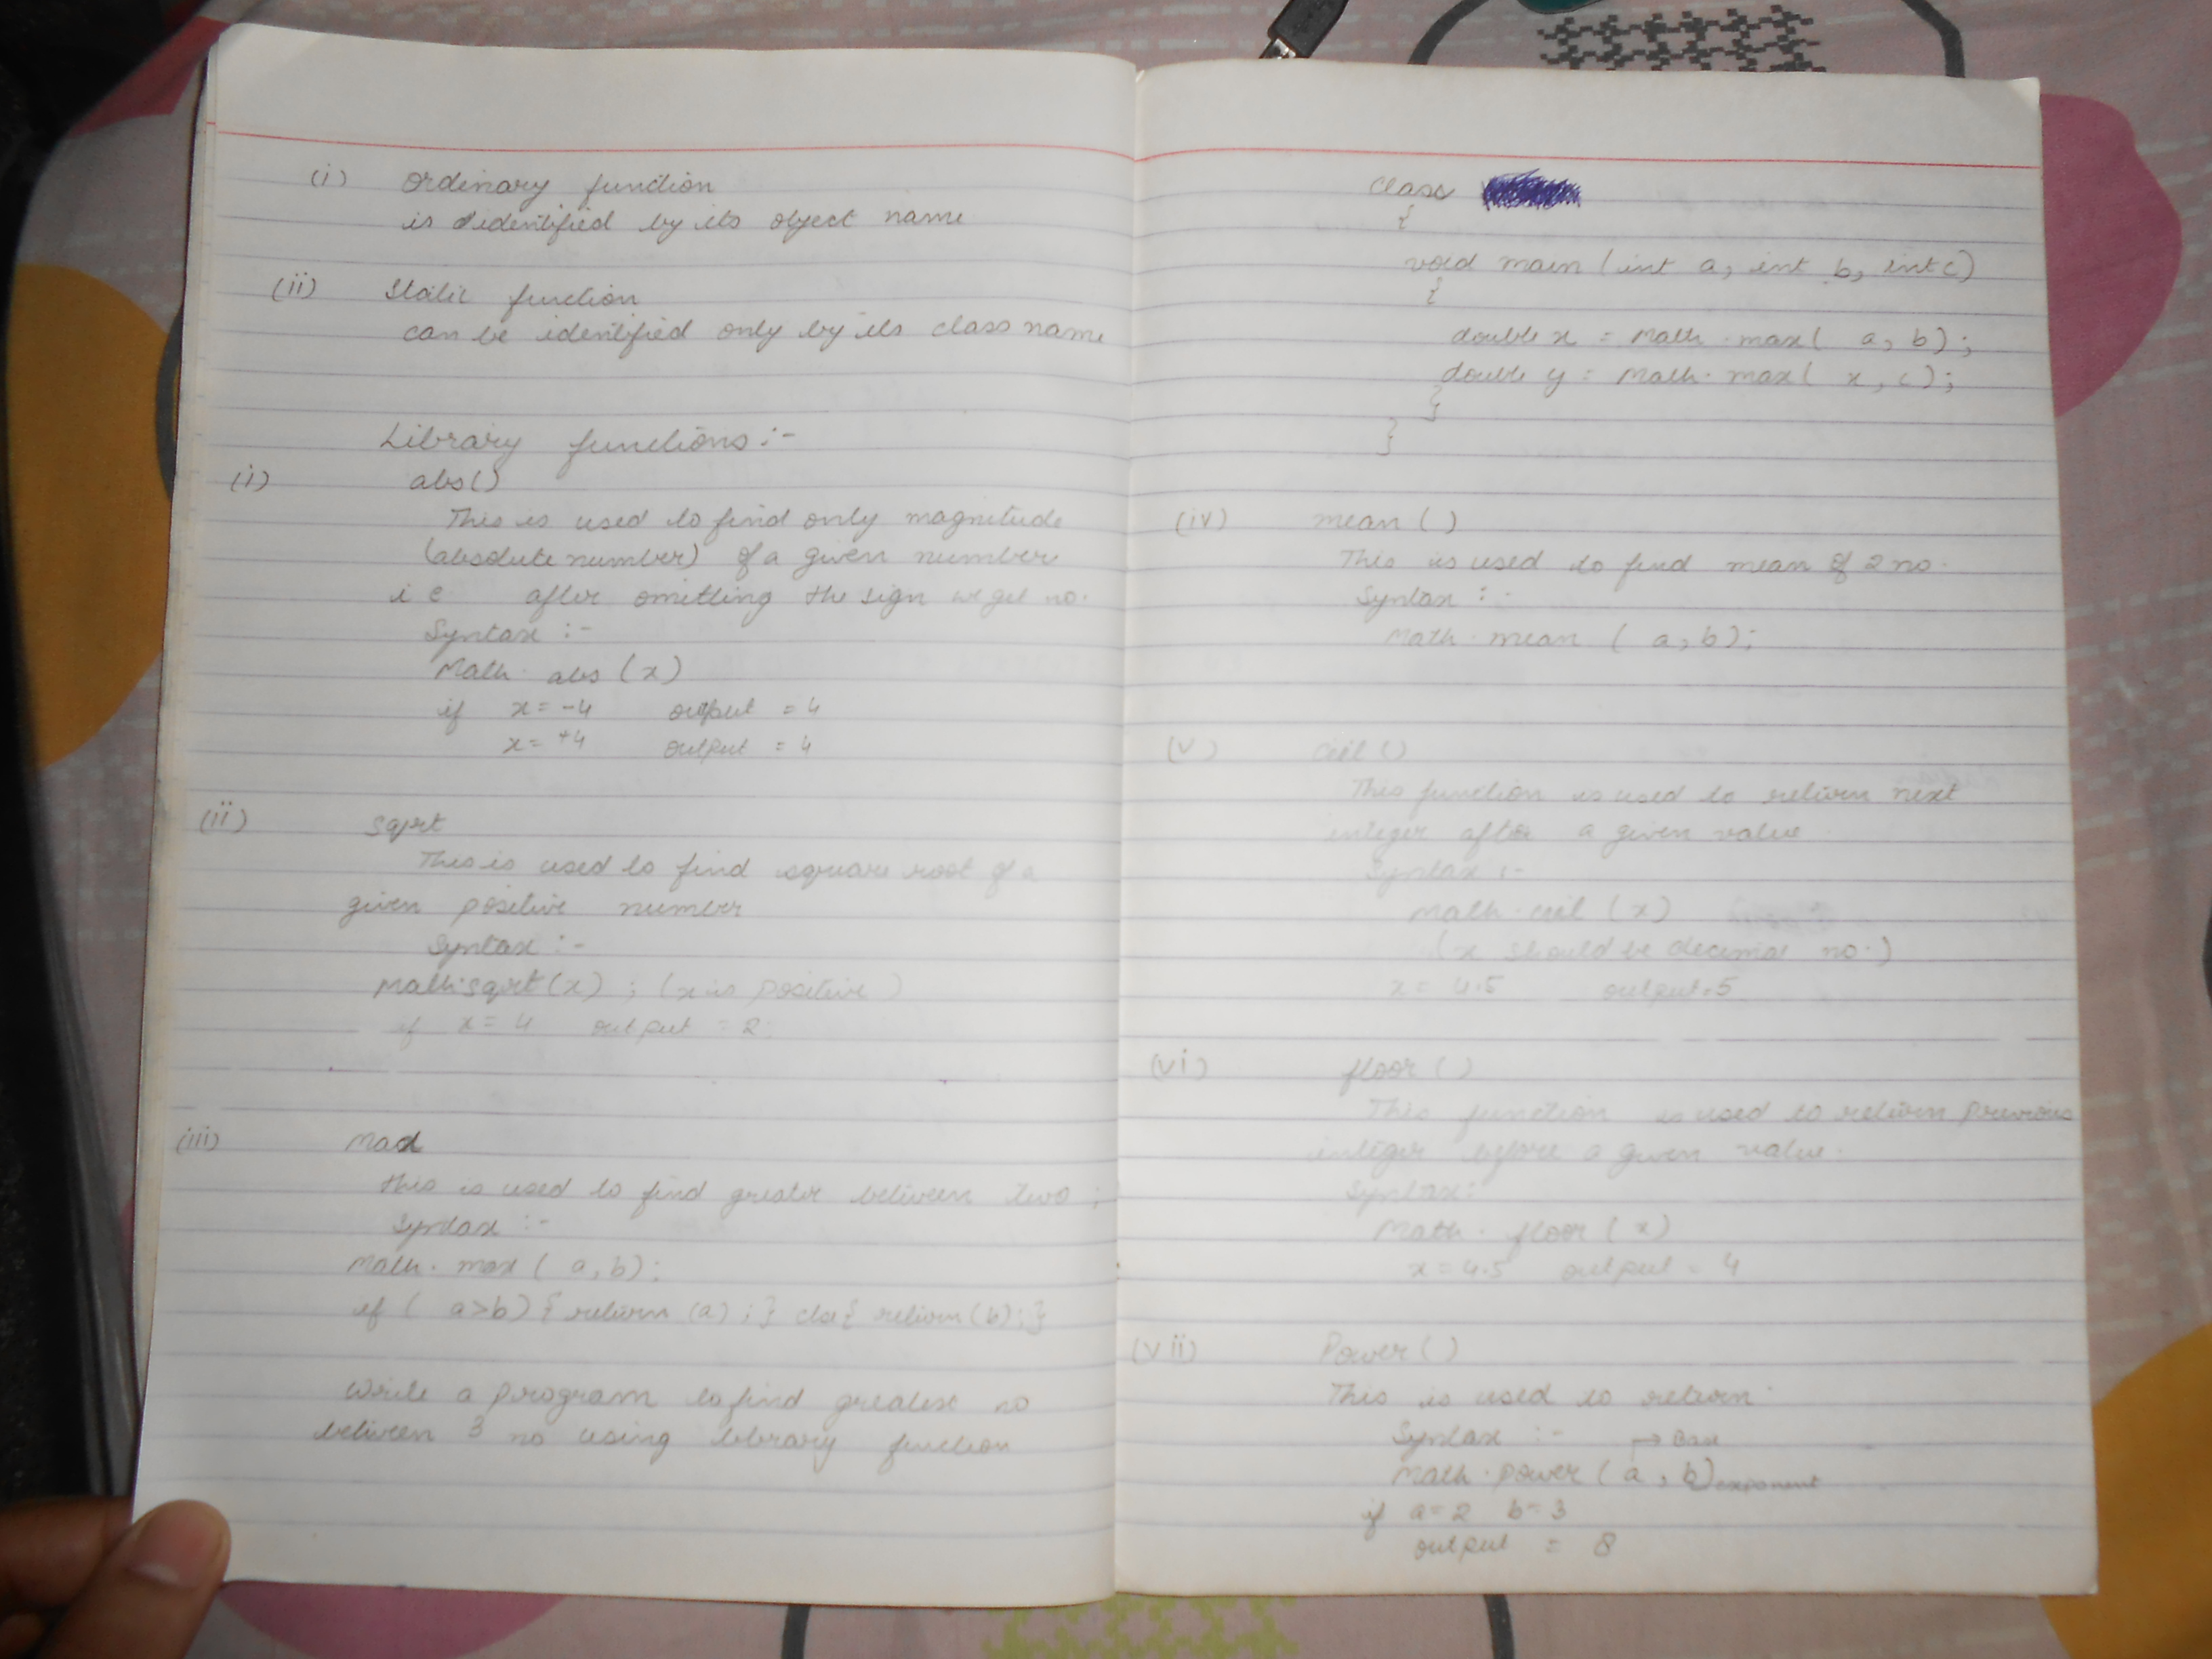 (i) Ordinary function
is didentified by its object name
(ii) Static function
can be identified only by its class name
Library functions :-
(i) abs()
This is used to find only magnitude
(absolute number) of a given number
i e after omitting the sign we get no.
Syntax :-
Math. abs (x)
if x = -4 output = 4
x = +4 output = 4
(ii) sqrt
This is used to find square root of a
given positive number
Syntax :-
Math.sqrt(x) ; (x is positive)
if x = 4 output = 2
(iii) Max
this is used to find greater between two ;
Syntax :-
Math. max ( a, b) ;
if ( a>b) { return (a) ; } else { return (b) ; }
Write a program to find greatest no
between 3 no using library function
class
{
void main (int a, int b, int c)
{
double x = Math . max ( a, b) ;
double y = Math . max ( x, c) ;
}
}
(iv) mean ( )
This is used to find mean of 2 no.
Syntax :-
Math . mean ( a, b) ;
(v) ceil ()
This function is used to return next
integer after a given value.
Syntax :-
Math . ceil (x)
(x should be decimal no.)
x = 4.5 output = 5
(vi) floor ( )
This function is used to return previous
integer before a given value.
Syntax :
Math . floor (x)
x = 4.5 output = 4
(vii) Power ( )
This is used to return
Syntax :- → Base
Math . power ( a , b) exponent
if a = 2 b = 3
output = 8